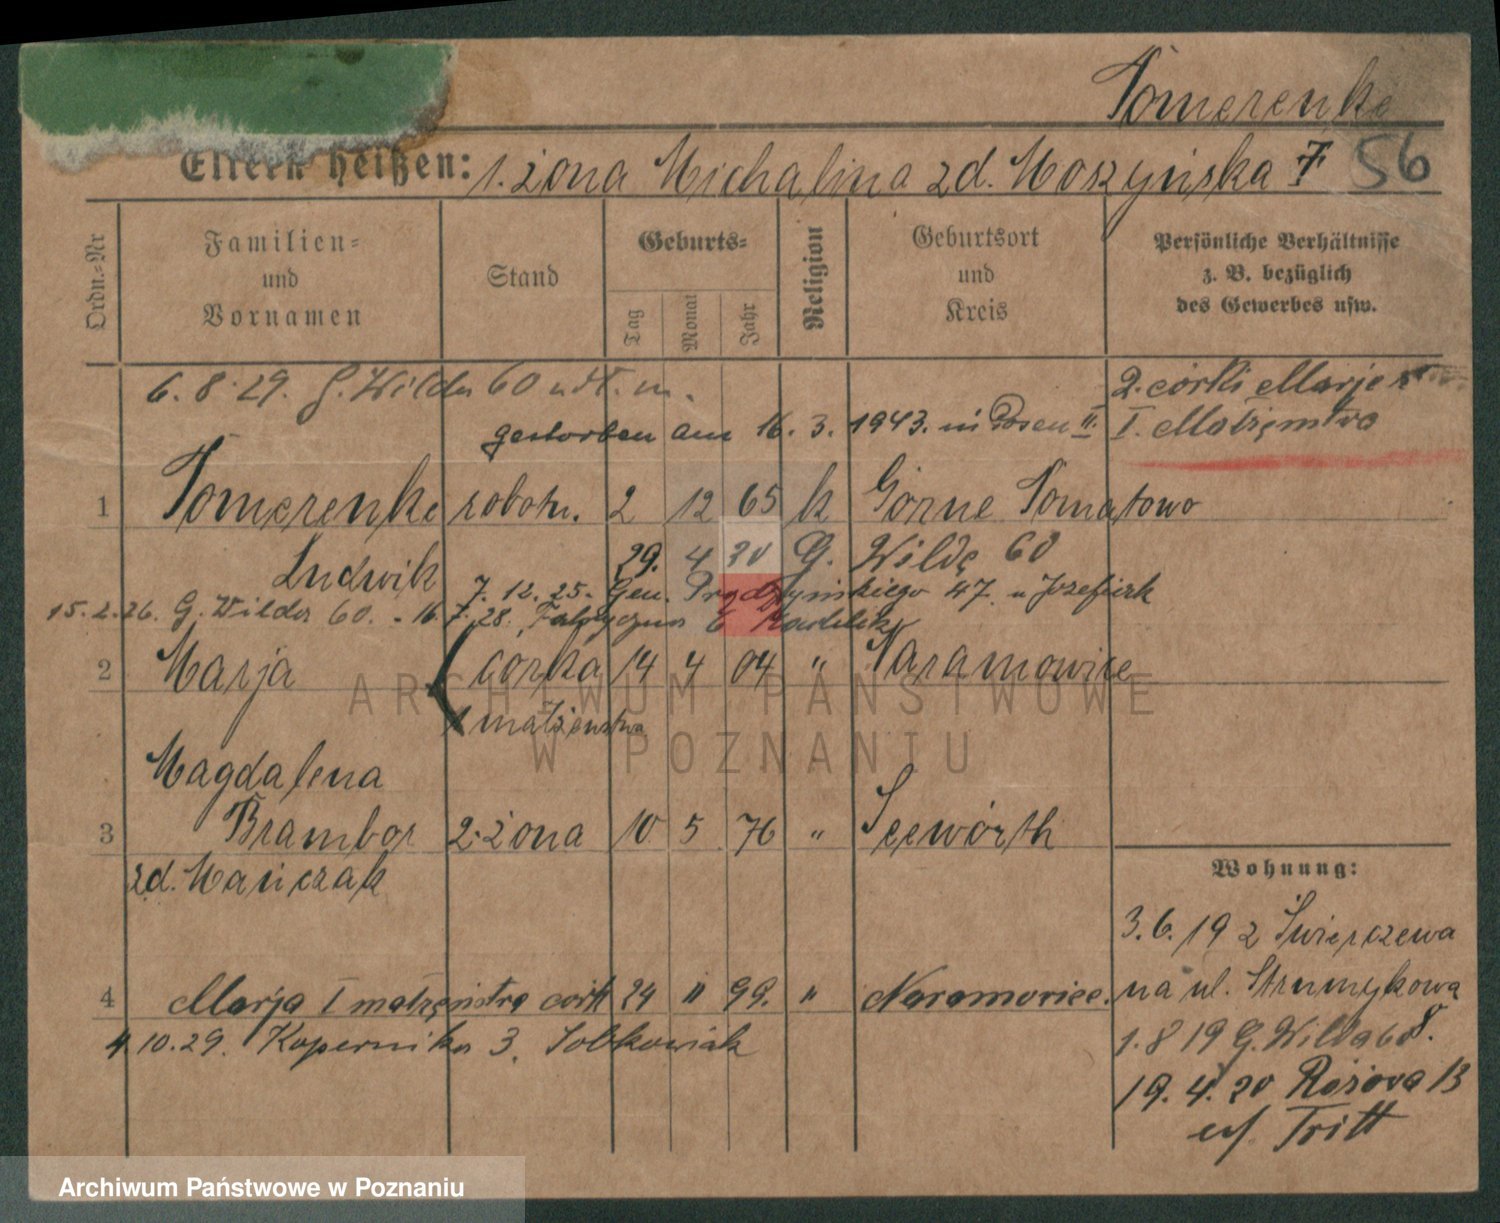 Pomerenke
Eltern heißen: 1. żona Michalina zd. Moszyńska 56
Ordn.-Nr
Familien-
und
Vornamen
Stand
Geburts-
Tag
Monat
Jahr
Religion
Geburtsort
und
Kreis
Persönliche Verhältnisse
z. B. bezüglich
des Gewerbes usw.
6.8.29. G. Wilda 60 m.
2. córki Marje
gestorben am 16. 3. 1943. in Posen II.
I. Małżeństwo
1 Pomerenke robotn. 2 12 65 k Górne
Ludwik 29. 4 20 G. Wildę 60
7. 12. 25. Gen. Prądzyńskiego 47. u Jozefiak
15.2.26. G. Wilda 60. - 16.7.28. Fabryczna
2 Marja córka 14 4 04 " Naramowice
małżeństwa
Magdalena
3 Brambor 2. żona 10 5 76 " Seewörth
zd. Mańczak
Wohnung:
3.6.19 z Świerczewa
4 Marja I 24 " 99. " Naramowice.
na ul. Strumykowa
4.10.29. Kopernika 3. Sobkowiak
1.8 19 G. Wilda 68.
19. 4. 20 Różova 13
Tritt
ARCHIWUM PAŃSTWOWE
W POZNANIU
Archiwum Państwowe w Poznaniu